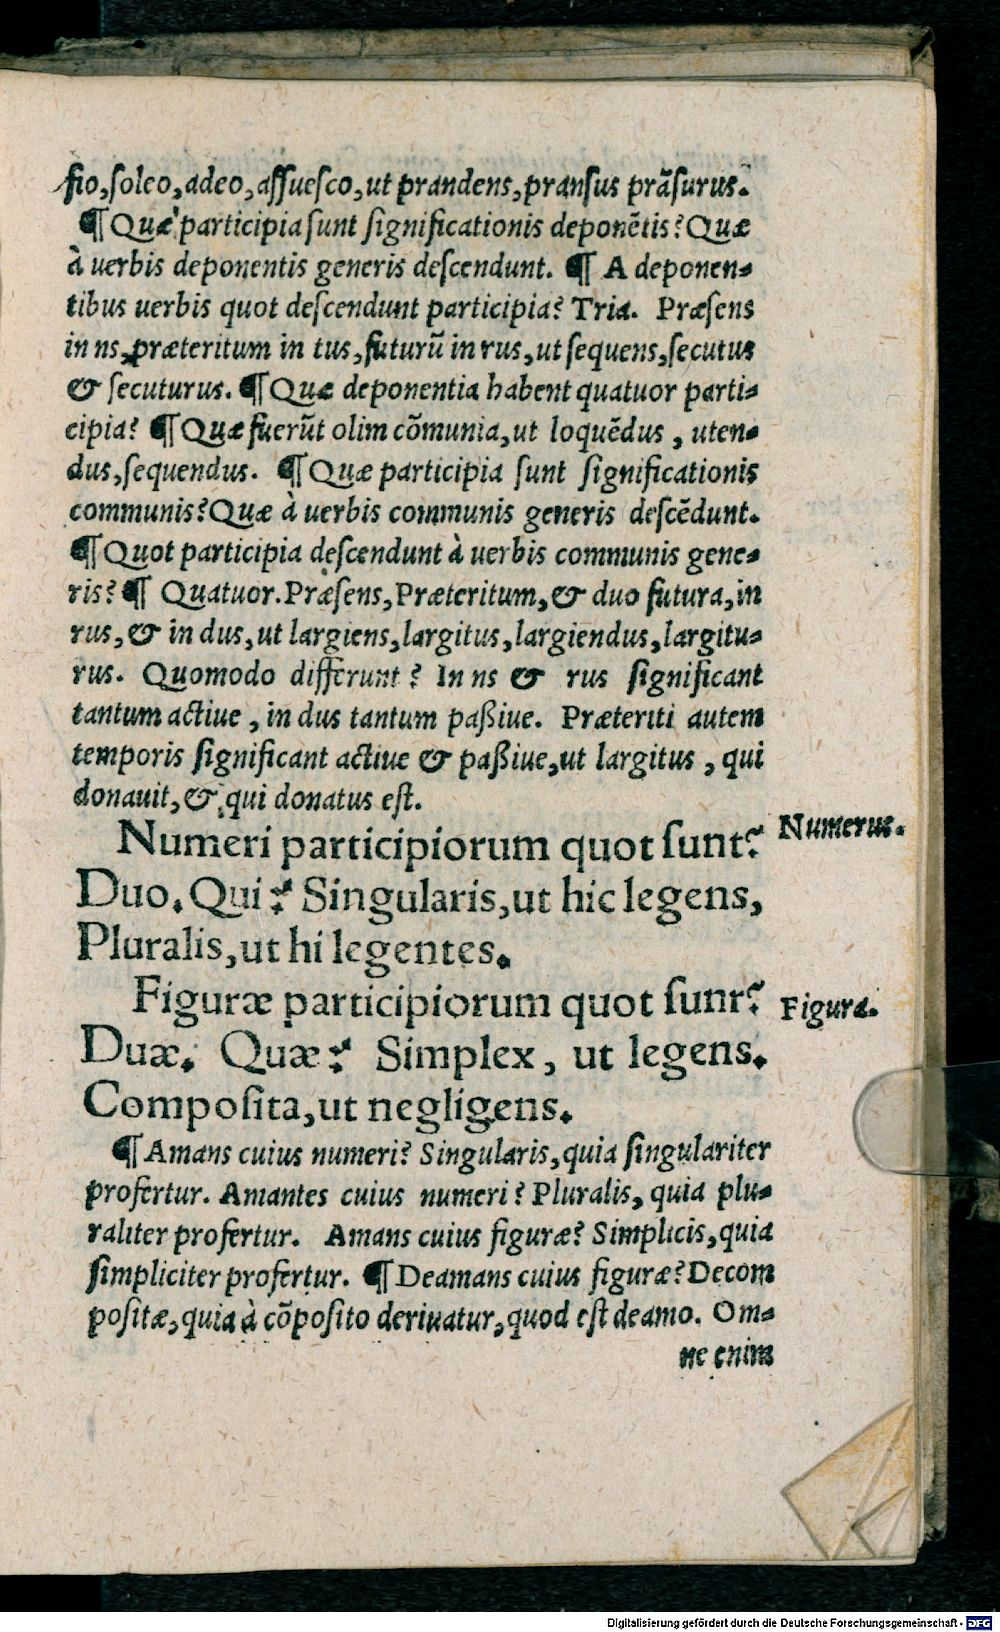 fio, ſoleo, adeo, aſſueſco, ut prandens, pranſus prãſurus.
¶ Quæ participia ſunt ſignificationis deponẽtis? Quæ
à uerbis deponentis generis deſcendunt. ¶ A deponen-
tibus uerbis quot deſcendunt participia? Tria. Præſens
in ns, præteritum in tus, futurũ in rus, ut ſequens, ſecutus
& ſecuturus. ¶ Quæ deponentia habent quatuor parti-
cipia? ¶ Quæ fuerũt olim cõmunia, ut loquẽdus, uten-
dus, ſequendus. ¶ Quæ participia ſunt ſignificationis
communis? Quæ à uerbis communis generis deſcẽdunt.
¶ Quot participia deſcendunt à uerbis communis gene-
ris? ¶ Quatuor. Præſens, Præteritum, & duo futura, in
rus, & in dus, ut largiens, largitus, largiendus, largitu-
rus. Quomodo differunt? In ns & rus ſignificant
tantum actiue, in dus tantum paßiue. Præteriti autem
temporis ſignificant actiue & paßiue, ut largitus, qui
donauit, & qui donatus eſt.
Numeri participiorum quot ſunt?
Numerus.
Duo. Qui? Singularis, ut hic legens,
Pluralis, ut hi legentes.
Figuræ participiorum quot ſunr?
Figura.
Duæ. Quæ? Simplex, ut legens.
Compoſita, ut negligens.
¶ Amans cuius numeri? Singularis, quia ſingulariter
profertur. Amantes cuius numeri? Pluralis, quia plu-
raliter profertur. Amans cuius figuræ? Simplicis, quia
ſimpliciter profertur. ¶ Deamans cuius figuræ? Decom
poſitæ, quia à cõpoſito deriuatur, quod eſt deamo. Om-
ne enim
Digitalisierung gefördert durch die Deutsche Forschungsgemeinschaft - DFG